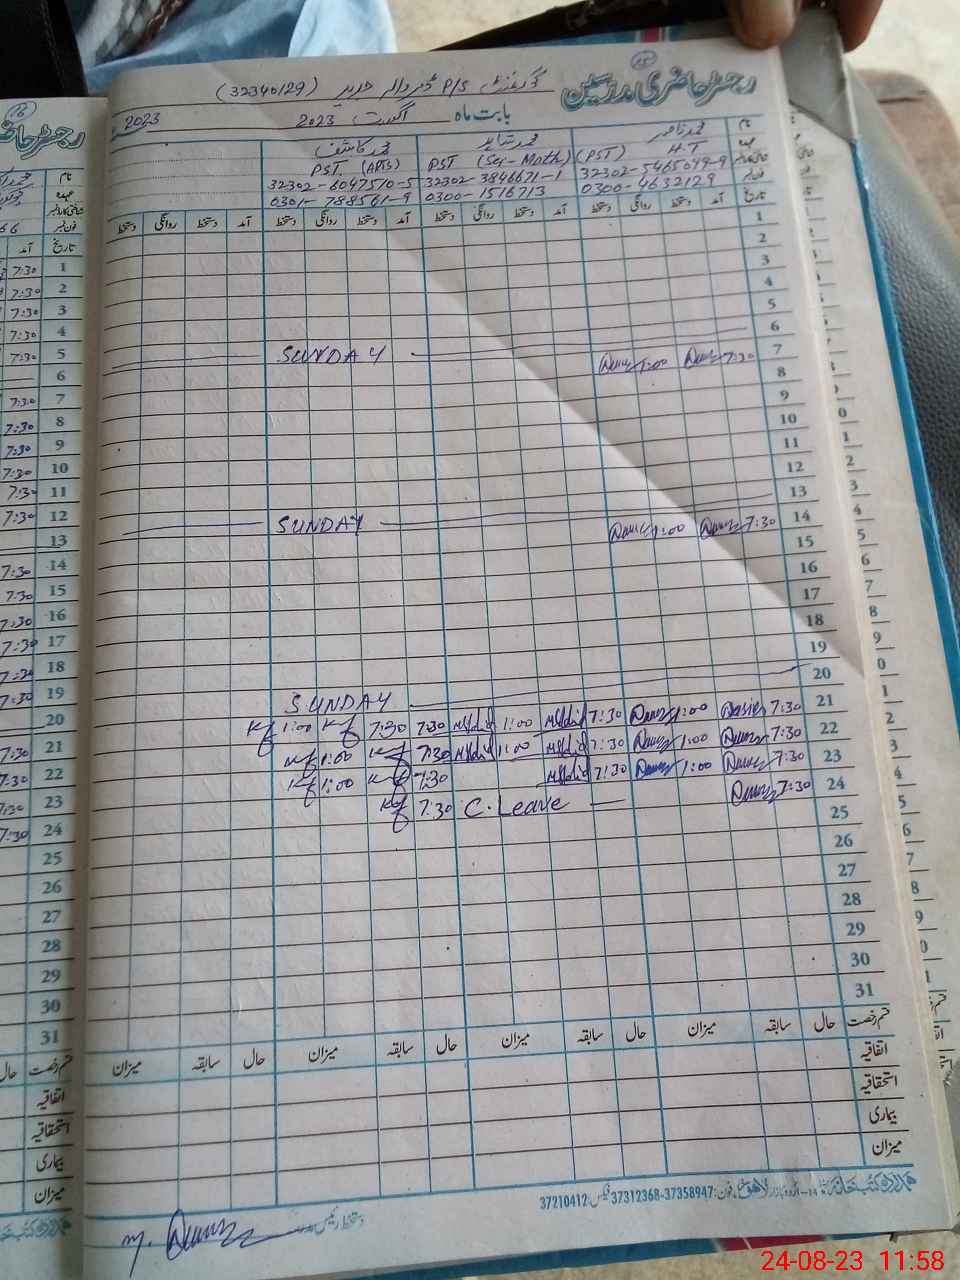 رجسٹر حاضری مدرسین
گورنمنٹ P/S (32340129)
بابت ماہ اگست 2023
2023
نام محمد ناصر محمد شاہد محمد کاشف
عہدہ H.T (PST) PST (Sci-Math) PST. (ARTS)
32302-5465049-9 32302-3846671-1 32302-6047510-5
فون نمبر 0300-4632129 0300-1516713 0301-788561-9
تاریخ آمد دستخط روانگی دستخط آمد دستخط روانگی دستخط آمد دستخط روانگی دستخط
1
2
3
4
5
6 SUNDAY
7 7:30 1:00
8
9
10
11
12
13 SUNDAY
14 7:30 1:00
15
16
17
18
19
20 SUNDAY
21 7:30 1:00 7:30 1:00 7:30 1:00
22 7:30 1:00 7:30 1:00 7:30 1:00
23 7:30 1:00 7:30 7:30 1:00
24 7:30 C. Leave 7:30
25
26
27
28
29
30
31
قسم رخصت حال سابقہ میزان حال سابقہ میزان حال سابقہ میزان حال سابقہ میزان
اتفاقیہ
استحقاقیہ
بیماری
میزان
ہمدرد کتب خانہ 14-اردو بازار لاہور فون:37358947-37312368 فیکس:37210412
دستخط رئیس مدرسہ
16
رجسٹر حاضری
نام
عہدہ
شناختی کارڈ نمبر
فون نمبر
تاریخ آمد
1 7:30
2 7:30
3 7:30
4 7:30
5 7:30
6
7 7:30
8 7:30
9 7:30
10 7:30
11 7:30
12 7:30
13
14 7:30
15 7:30
16 7:30
17 7:30
18 7:30
19 7:30
20
21 7:30
22 7:30
23 7:30
24 7:30
25
26
27
28
29
30
31
قسم رخصت حال
اتفاقیہ
استحقاقیہ
بیماری
میزان
24-08-23 11:58